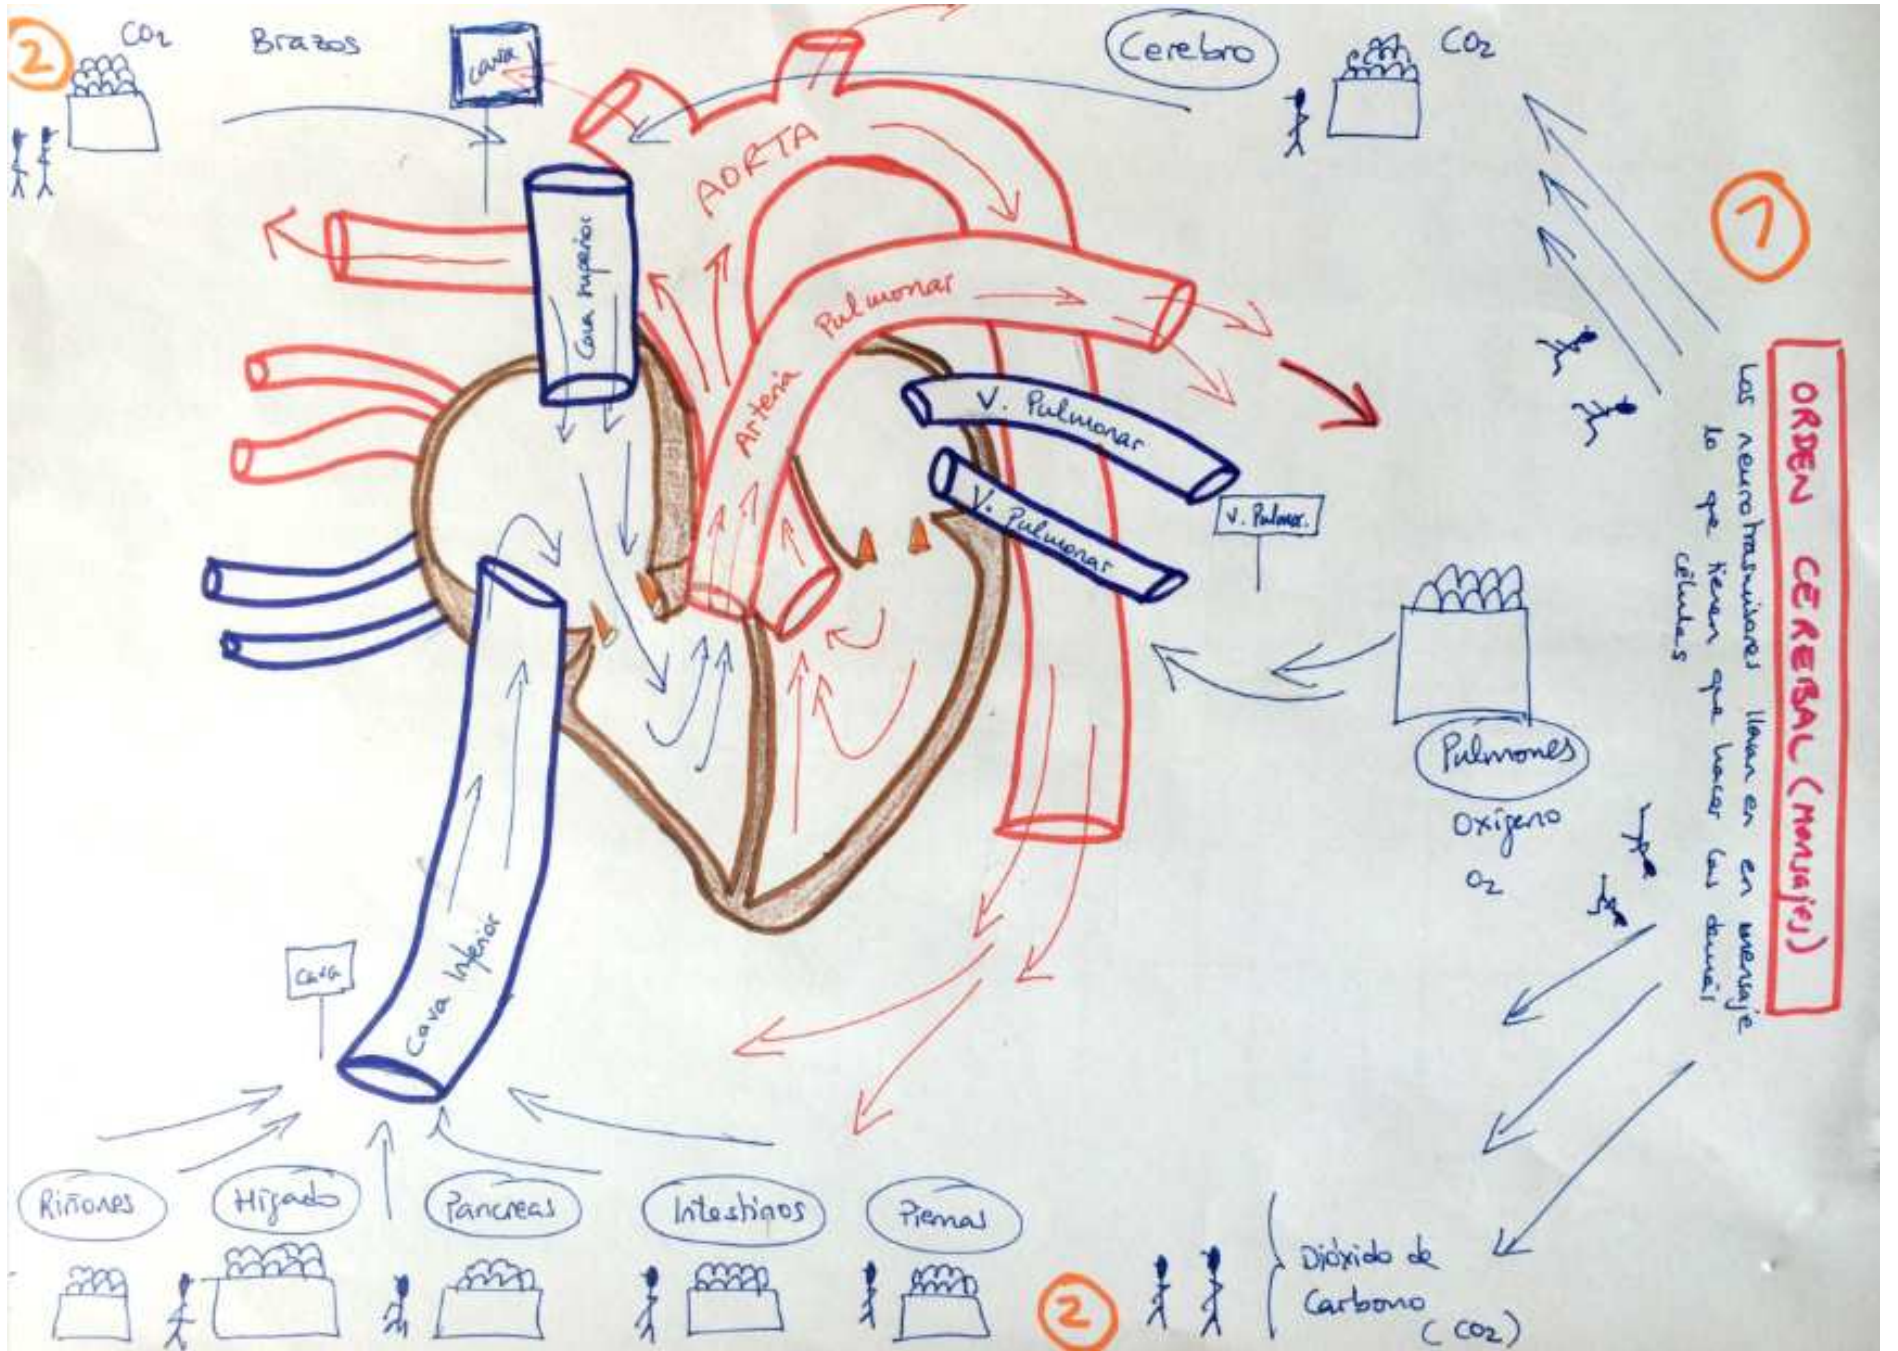 2
CO2
Brazos
Cava
Cerebro
CO2
1
AORTA
Cava superior
Arteria Pulmonar
V. Pulmonar
V. Pulmonar
V. Pulmor.
ORDEN CEREBAL (Mensajes)
Las neurotrasmisores llevan en en mensaje
lo que tienen que hacer las demás
células
Pulmones
Oxígeno
O2
Cava
Cava Inferior
Riñones
Hígado
Pancreas
Intestinos
Piernas
2
Dióxido de
Carbono
(CO2)